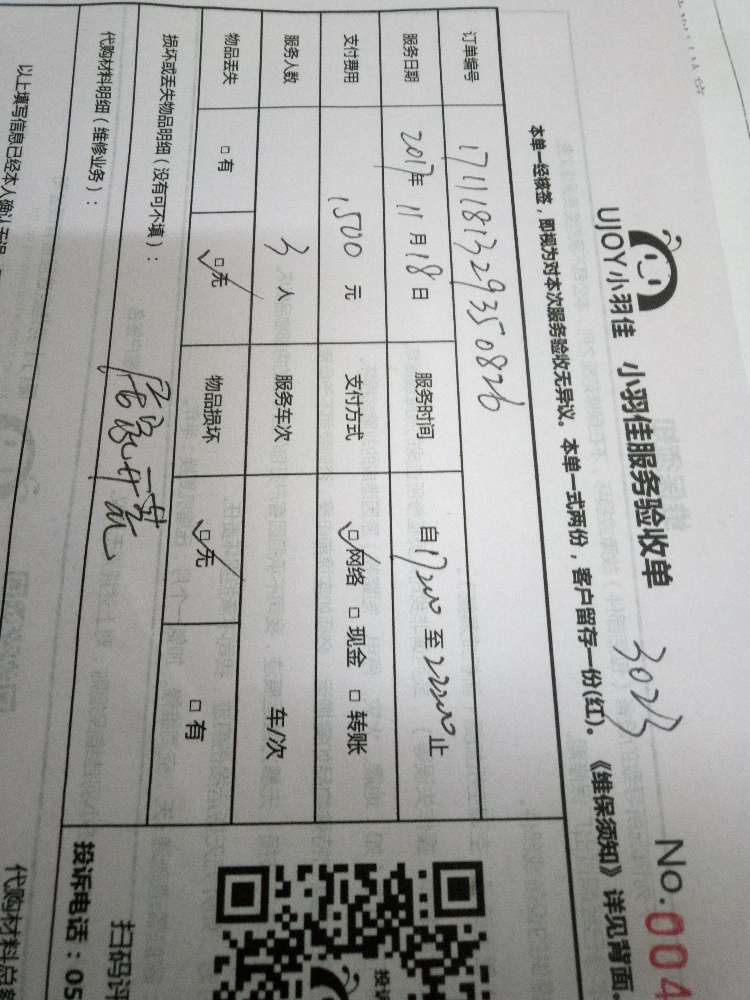 UJOY小羽佳 小羽佳服务验收单 3023 No.004
本单一经接签，即视为对本次服务验收无异议。本单一式两份，客户留存一份(红)。《维保须知》详见背面
订单编号 1711181329350826
服务日期 2017年 11月 18日 服务时间 自17:00 至22:00止
支付费用 1500 元 支付方式 网络 现金 转账
服务人数 3 人 服务车次 车/次
物品丢失 有 无 物品损坏 无 有
损坏或丢失物品明细（没有可不填）：
代购材料明细（维修业务）：
居家
以上填写信息已经本人确认无误
投诉电话：05
扫码评
代购材料总
投诉